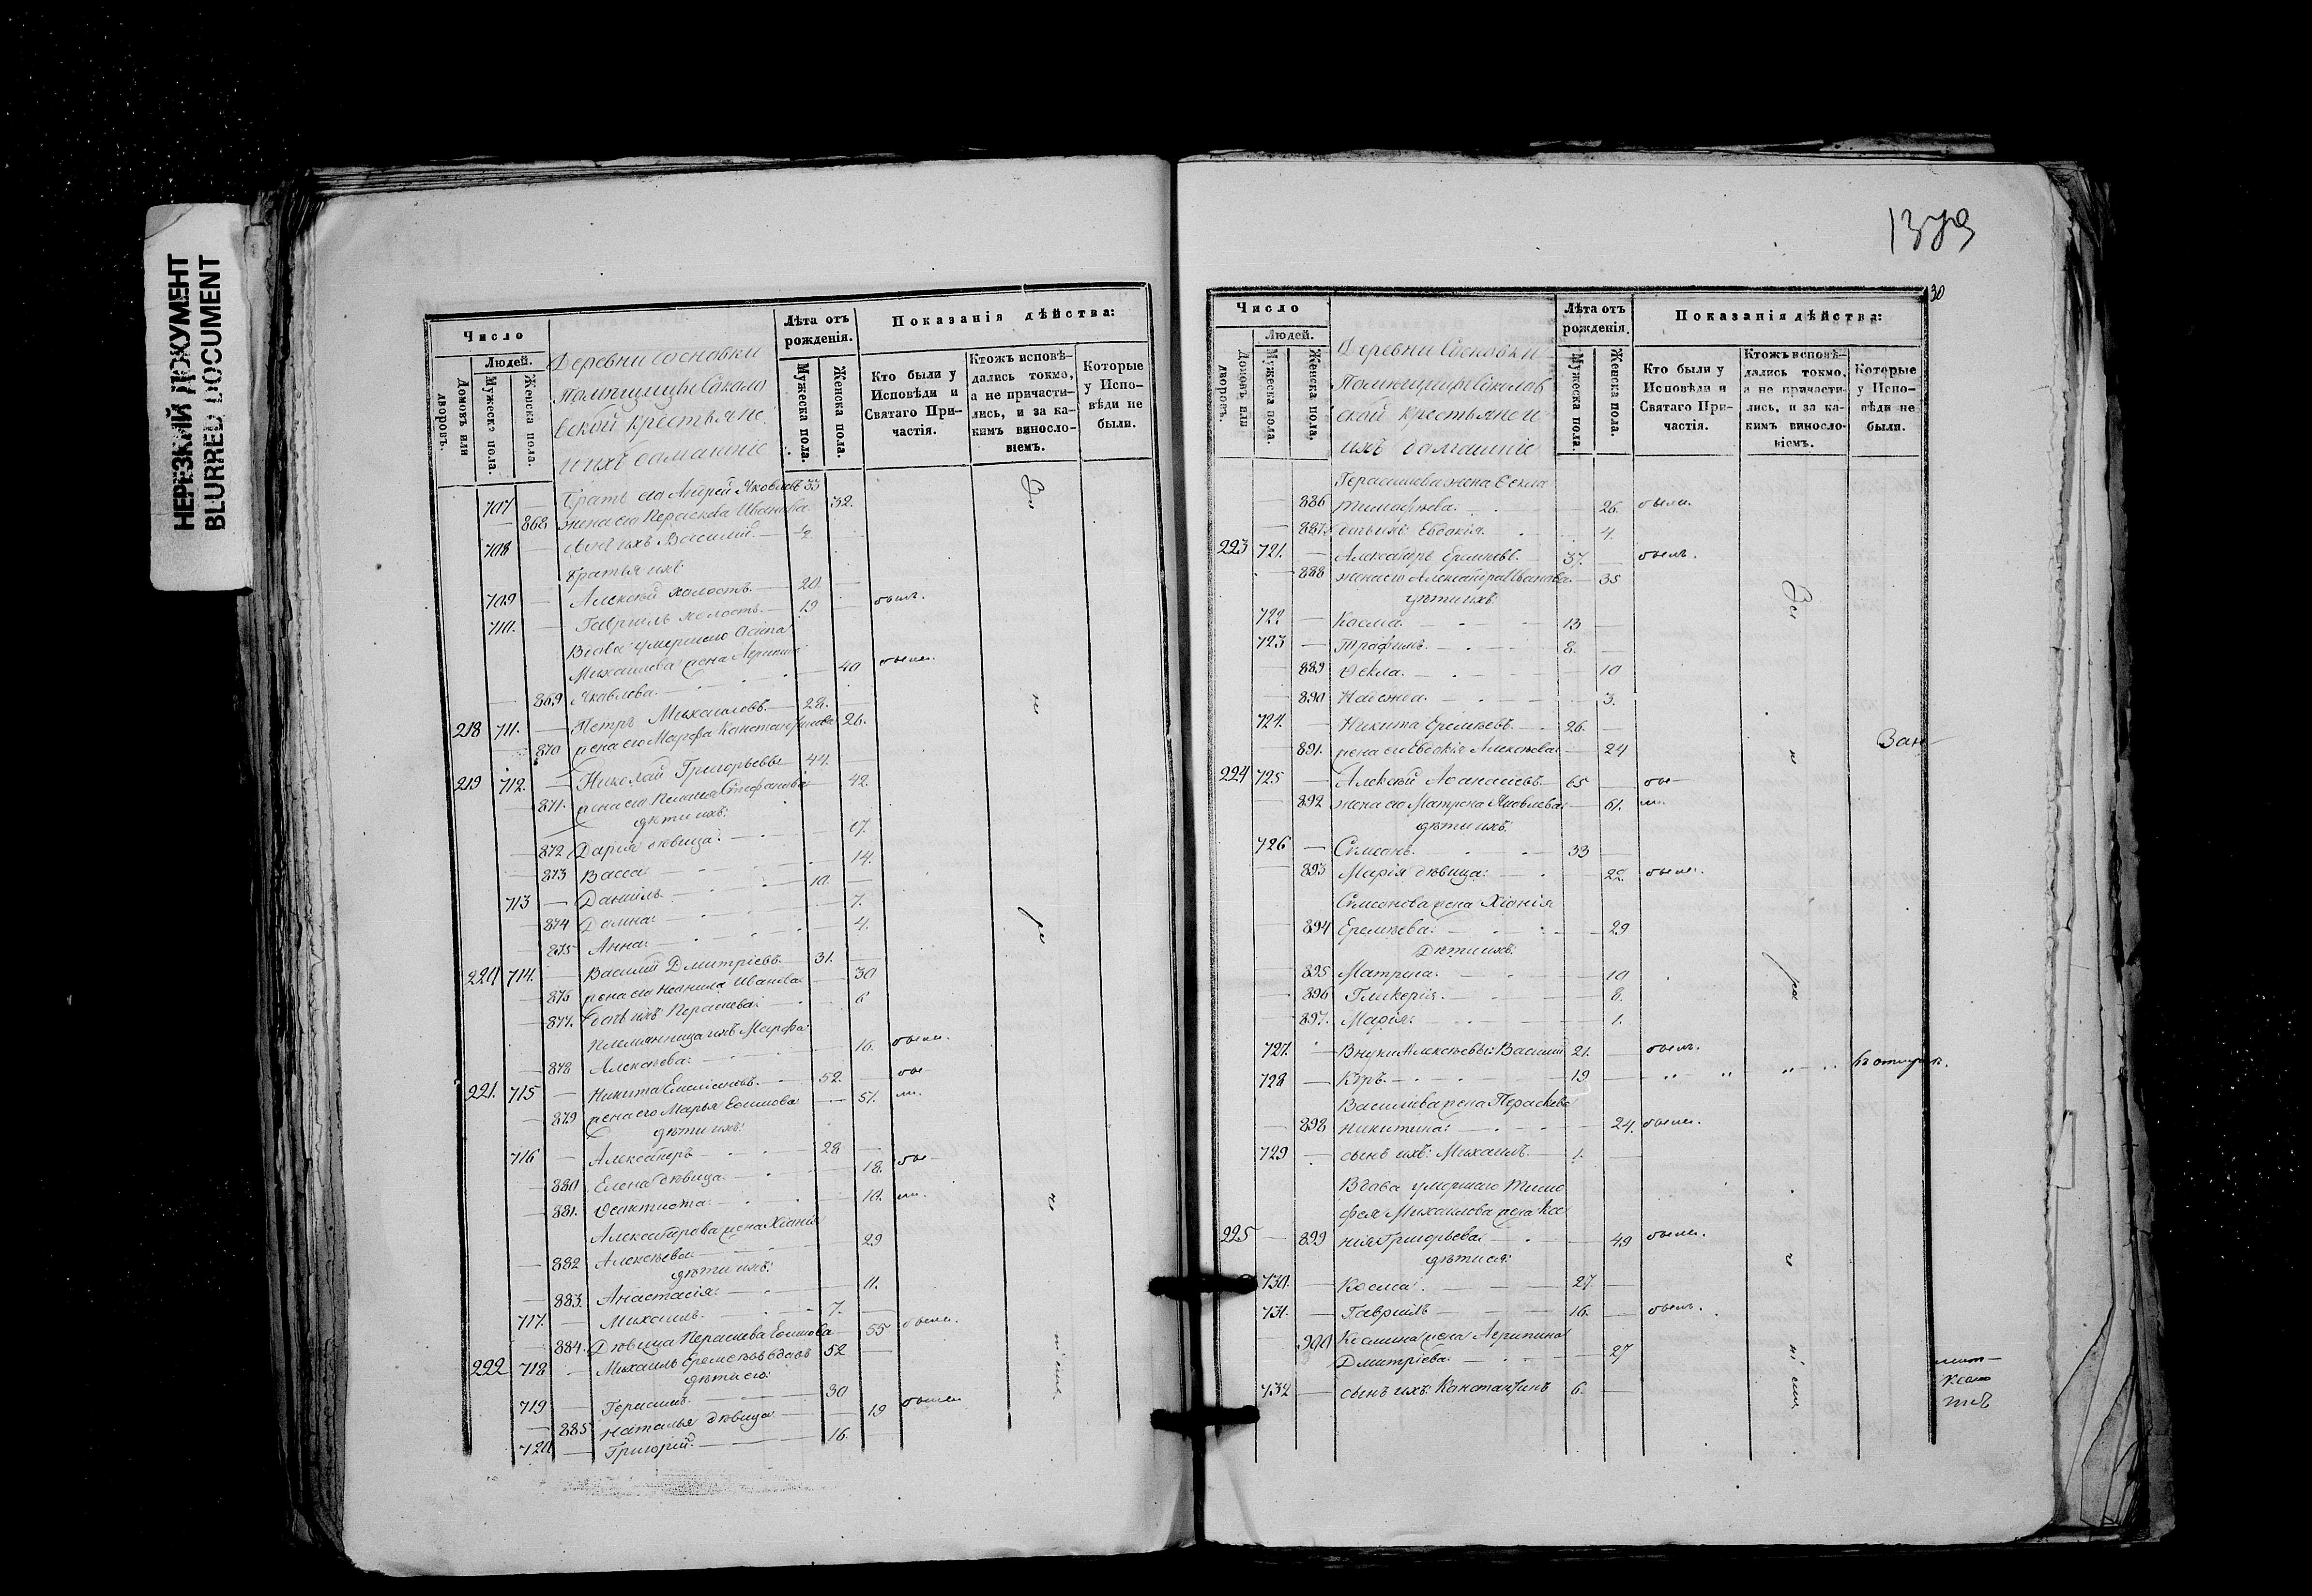 НЕРЕЗКИЙ ДОКУМЕНТ
BLURRED DOCUMENT
Число
Людей.
Домовъ или дворовъ.
Мужеска пола.
Женска пола.
Деревни Сосновки
помѣщицы Соколо
вской крестьяне
и ихъ домашніе
Лѣта отъ рожденія.
Мужеска пола.
Женска пола.
Показанія дѣйства:
Кто были у Исповѣди и Святаго Причастія.
Ктожъ исповѣдались токмо, а не причастились, и за какимъ винословіемъ.
Которые у Исповѣди не были.
707 — Братъ его Андрей Яковлевъ 33
— 868 жена его Параскева Иванова 32.
708 — сынъ ихъ Василій — ½
братья ихъ:
709 — Алексѣй холостъ. — 20. —
710. — Гавріилъ холостъ. — 19 — былъ.
Вдова умершаго Осипа
Михаилова жена Агрипина
— 869 Яковлева. — 40 были.
218 711. — Петръ Михаиловъ. — 28. —
870 жена его Марфа Константинова 26.
219 712. — Николай Григорьевъ 44. —
871. жена его Стефанова 42.
дѣти ихъ:
— 872 Дарья дѣвица: — 17.
— 873 Васса — 14.
713 — Даніилъ — 10. —
— 874 Домна: — 7.
— 875 Анна: — 4.
220 714. — Василій Дмитріевъ. 31. —
— 876 жена его Неонила Иванова — 30
— 877. дочь ихъ Параскева: — 6
Племянница ихъ Марфа
— 878 Алексѣева: — 16. были.
221. 715 — Никита Емельяновъ. — 52. — бы
— 879 жена его Марья Ефимова — 51. ли.
дѣти ихъ:
716 — Александръ — 28 —
— 880 Елена дѣвица. — 18. бы
— 881. Феоктиста: — 10. ли.
Александрова жена Хіонія
— 882 Алексѣева: — 29
дѣти ихъ:
— 883. Анастасія: — 11.
717. — Михаилъ. — 7. —
— 884. Дѣвица Параскева Ефимова — 55 были.
222 718 — Михаилъ Еремѣевъ вдовъ 52 —
дѣти его:
719 — Герасимъ. — 30
— 885 Наталья дѣвица — 19 были
720 — Григорій. — 16.
1379
30
Число
Людей.
Домовъ или дворовъ.
Мужеска пола.
Женска пола.
Деревни Сосновки
Помѣщицы Соколов
ской крестьяне и
ихъ домашніе
Лѣта отъ рожденія.
Мужеска пола.
Женска пола.
Показанія дѣйства:
Кто были у Исповѣди и Святаго Причастія.
Ктожъ исповѣдались токмо, а не причастились, и за какимъ винословіемъ.
Которые у Исповѣди не были.
Герасимова жена Фекла
— 886 Тимофѣева. — 26. были.
— 887. дочь ихъ Евдокія. 4.
223 721. — Александръ Еремѣевъ. 37. — былъ.
— 888 жена его Александра Иванова — 35
дѣти ихъ:
722 — Косма. — 13 —
723 — Трофимъ. — 8. —
— 889 Фекла. — 10
— 890 Надежда. — 3.
724. — Никита Еремѣевъ. — 26. —
— 891. жена его Евдокія Алексѣева — 24
224 725 — Алексѣй Афанасіевъ. — 65 — бы
— 892 жена его Матрона Яковлева — 61. ли.
дѣти ихъ:
726 — Симеонъ. — 33 —
— 893 Марія дѣвица: — 22. были.
Симеонова жена Хіонія
— 894 Еремѣева: — 29
Дѣти ихъ:
— 895 Матрона: — 10
— 896 Гликерія. — 8.
— 897. Марія: — 1.
727. — Внуки Алексѣевы: Василій 21. — былъ.
728 — Киръ. — 19 —
Васильева жена Параскева
— 898 Никитина: — 24. были.
729 — сынъ ихъ: Михаилъ. — 1. —
Вдова умершаго Тимо
фея Михаилова жена Ксе
225 — 899 нія Григорьева — 49 были.
дѣти ея:
730. — Косма: — 27. —
731. — Гавріилъ — 16. — былъ.
900 Космина жена Агрипина
Дмитріева. — 27
732 — сынъ ихъ: Константинъ 6. —